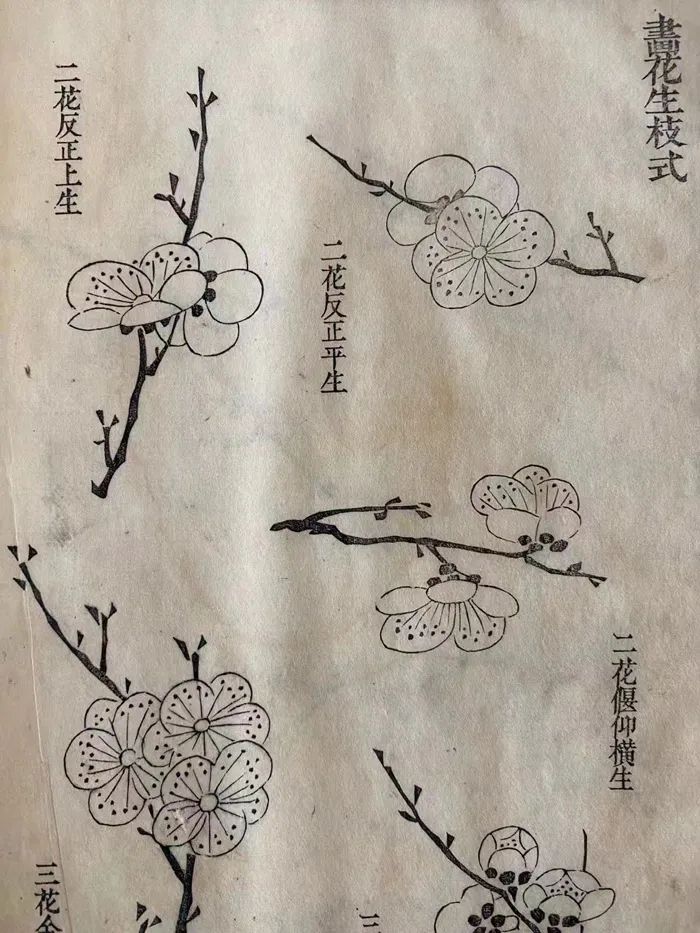 畫花生枝式
二花反正平生
二花反正上生
二花偃仰橫生
三
三花全